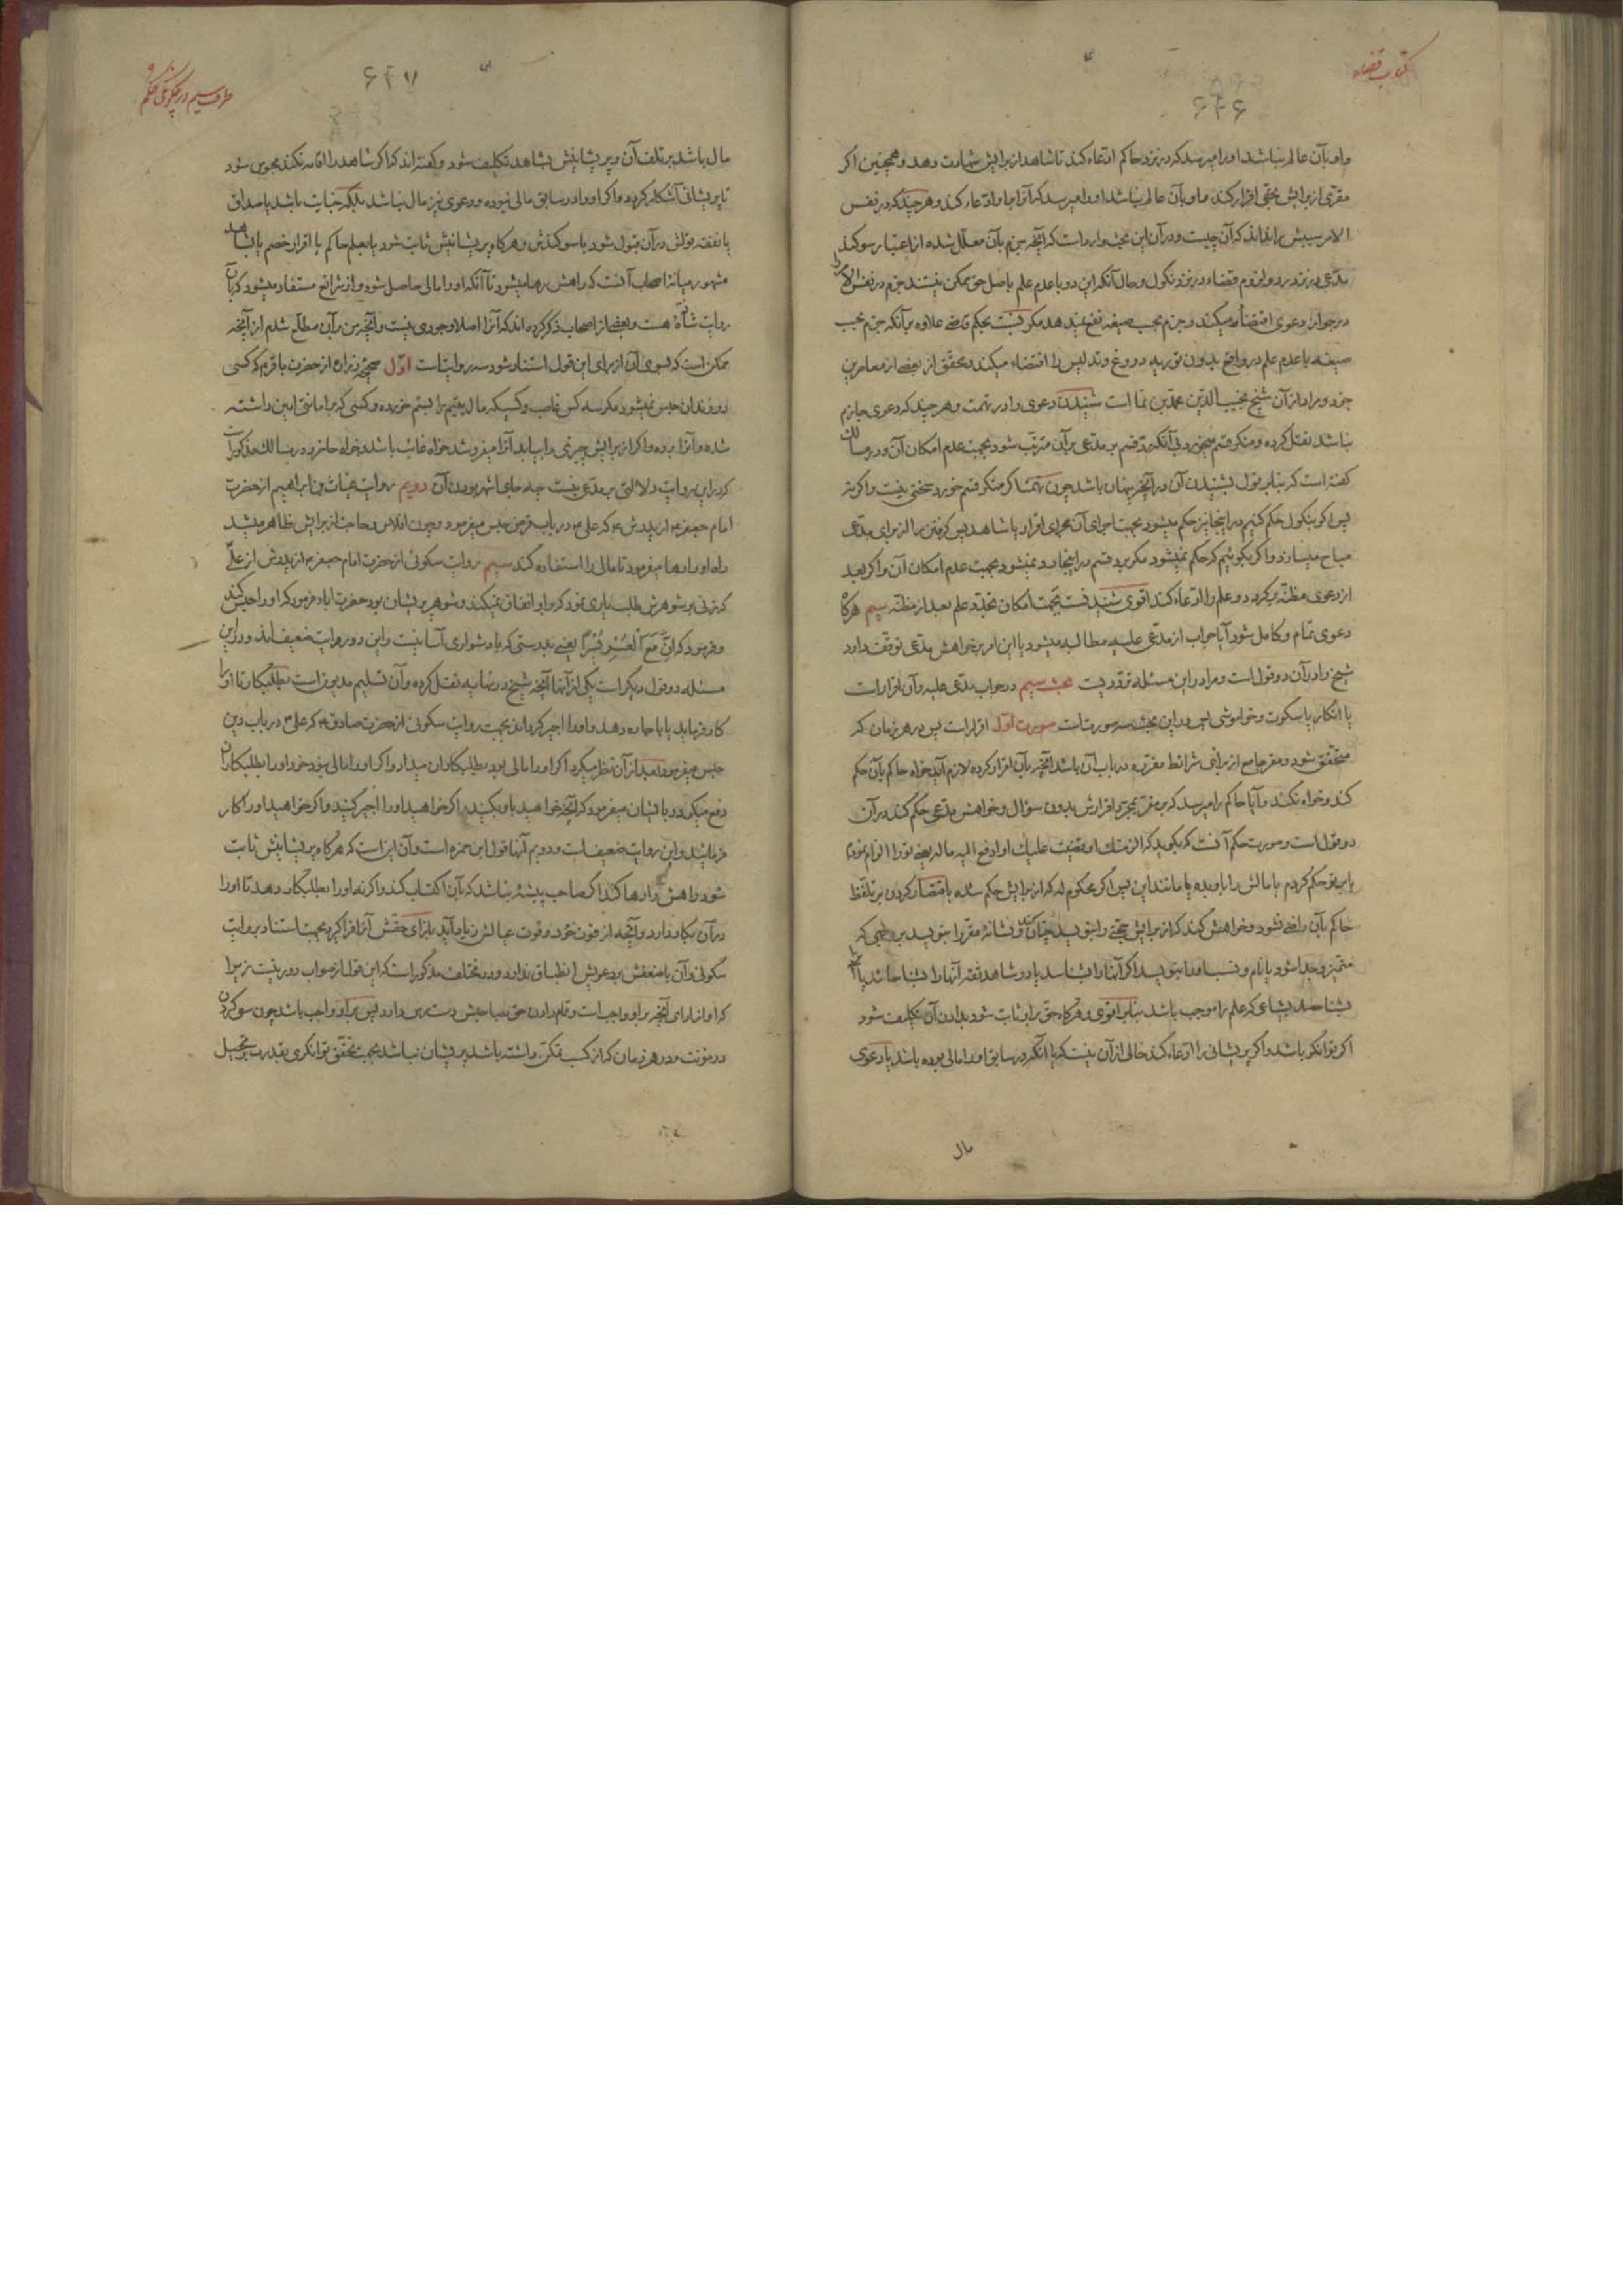 کتاب قضاء
۶۴۶
و او بآن عالم نباشد او را میرسد که در نزد حاکم ادعاء کند تا شاهد از برایش شهادت دهد و همچنین اکر
مقری از برایش بحقی اقرار کند و او بآن عالم نباشد او را میرسد که آنرا با او ادعاء کند و هر چند که در نفس
الامر سببش را نداند که آن چیست و در آن این بحث وارد است که آنچه جزم بآن معلل شده از اعتبار سوکند
مدعی در نزد رد و لزوم قضاء در نزد نکول و حال آنکه این دو با عدم علم باصل حق ممکن نیستند جزم در نفس الامر را
در جواز دعوی اقتضاء میکند و جزم بحسب صیغه نفع نمیدهد مکر نسبت بحکم قاضی علاوه بر آنکه جزم بحسب
صیغه با عدم علم در واقع بدون توریه دروغ و تدلیس را اقتضاء میکند و محقق از بعضی از معاصرین
خود و مراد از آن شیخ نجیب الدین محمد بن نما است شنیدن دعوی را در تهمت و هر چند که دعوی جازم
نباشد نقل کرده و منکر قسم میخورد بی آنکه رد قسم بر مدعی بر آن مترتب شود بجهت عدم امکان آن و در مسالک
کفته است که بنا بر قول بشنیدن آن در آنچه پنهان باشد چون تهمت اکر منکر قسم خورد سخنی نیست و اکر نه
پس اکر بنکول حکم کنیم در اینجا نیز حکم میشود بجهت اجرای آن مجرای اقرار یا شاهد پس کرفتن را از برای مدعی
مباح میسازد و اکر بکوئیم که حکم نمیشود مکر برد قسم در اینجا رد نمیشود بجهت عدم امکان آن و اکر بعد
از دعوی مظنه برکردد و علم را ادعاء کند اقوی شنیدنست بجهت امکان تجدد علم بعد از مظنه سیم هرکاه
دعوی تمام و کامل شود آیا جواب از مدعی علیه مطالبه میشود یا این امر بخواهش مدعی توقف دارد
شیخ را در آن دو قول است و مرا در این مسئله ترددیست بحث سیم در جواب مدعی علیه و آن اقرار است
یا انکار یا سکوت و خواموشی پس در این بحث سه صورتست صورت اول اقرار است پس در هر زمان که
متحقق شود و مقر جامع از برای شرائط مقرره در باب آن باشد آنچه بآن اقرار کرده لازم آید خواه حاکم بآن حکم
کند و خواه نکند و آیا حاکم را میرسد که بر مقر بمجرد اقرارش بدون سؤال و خواهش مدعی حکم کند در آن
دو قول است و صورت حکم آنست که بکوید که الزمتک او قضیت علیک او ادفع الیه ماله یعنی تو را الزام نمودم
یا بر تو حکم کردم یا مالش را باو بده یا مانند این پس اکر محکوم له که از برایش حکم شده باقتصار کردن بر تلفظ
حاکم بآن راضی نشود و خواهش کند که از برایش حجتی را بنویسد چنان کند و نشانهٔ مقر را بنویسد بر وجهی که
متمیز و جدا شود یا نام و نسب او را بنویسد اکر آنها را بشناسد یا دو شاهد ثقه آنها را بشناسانند یا آنها را
بشناسد بشیاعی که علم را موجب باشد بنا بر اقوی و هرکاه حق بر او ثابت شود بدادن آن تکلیف شود
اکر توانکر باشد و اکر پریشانی را ادعاء کند خالی از آن نیست که یا آنکه در سابق او را مالی بوده باشد یا دعوی
مال
طرف سیم در چکونکی حکم
۶۴۷
مال باشد بر تلف آن و پریشانیش بشاهد تکلیف شود و کفته اند که اکر شاهد را اقامه نکند محبوس شود
تا پریشانی آشکار کردد و اکر او را در سابق مالی نبوده و دعوی نیز مال نباشد بلکه جنایت باشد یا صداق
یا نفقه قولش در آن قبول شود با سوکندش و هرکاه پریشانیش ثابت شود یا بعلم حاکم یا اقرار خصم یا بشاهد
مشهور میانهٔ اصحاب آنست که راهش رها میشود تا آنکه او را مالی حاصل شود و از شرائع مستفاد میشود که بآن
روایت شاذه هست و بعضی از اصحاب ذکر کرده اند که آنرا اصلا وجودی نیست و آنچه من بر آن مطلع شدم از آنچه
ممکن است که بسوی آن از برای این قول استناد شود سه روایت است اول صحیحهٔ زراره از حضرت باقر م که کسی
در زندان حبس نمیشود مکر سه کس غاصب و کسیکه مال یتیم را بستم خورده و کسی که بر امانتی امین داشته
شده و آنرا برده و اکر از برایش چیزی را بیابد آنرا میفروشد خواه غائب باشد و خواه حاضر و در مسالک مذکور است
که در این روایت دلالتی بر مدعی نیست چه جای اشهر بودن آن دویم روایت غیاث بن ابراهیم از حضرت
امام جعفر م از پدرش م که علی م در باب قرض حبس میفرمود و چون افلاس و حاجت از برایش ظاهر میشد
راه او را رها میفرمود تا مالی را استفاده کند سیم روایت سکونی از حضرت امام جعفر م از پدرش از علی
که زنی بر شوهرش طلب یاری نمود که بر او انفاق نمیکند و شوهر پریشان بود حضرت اباء فرمود که او را حبس کند
و فرمود که اِنَّ مَعَ الْعُسْرِ یُسْرًا یعنی بدرستی که با دشواری آسانیست و این دو روایت ضعیف اند و در این
مسئله دو قول دیکر است یکی از آنها آنچه شیخ در نهایه نقل کرده و آن تسلیم مدیون است بطلبکار تا او را
کار فرماید یا باجاره دهد و او را اجیر کرداند بجهت روایت سکونی از حضرت صادق م که علی م در باب دین
حبس میفرمود بعد از آن نظر میکرد اکر او را مالی بود بطلبکاران میداد و اکر او را مالی نبود خود او را بطلبکاران
دفع میکرد و بایشان میفرمود که آنچه خواهید باو بکنید اکر خواهید او را اجیر کنید و اکر خواهید او را کار
فرمائید و این روایت ضعیف است و دویم آنها قول ابن حمزه است و آن این است که هرکاه پریشانیش ثابت
شود راهش را رها کند اکر صاحب پیشهٔ نباشد که بآن اکتساب کند و اکر نه او را بطلبکار دهد تا او را
در آن بکار دارد و آنچه از قوت خود و قوت عیالش زیاد آید بازای حقش آنرا فرا کیرد بجهت استناد بروایت
سکونی و آن با ضعفش بدعویش انطباق ندارد و در مختلف مذکور است که این قول از صواب دور نیست زیرا
که او از ادای آنچه بر او واجب است و تمام دادن حق بصاحبش دست رس دارد پس بر او واجب باشد چون سعی کردن
در مؤنت و در هر زمان که از کسب تمکن داشته باشد پریشان نباشد بجهت تحقق توانکری بقدرت بر تحصیل